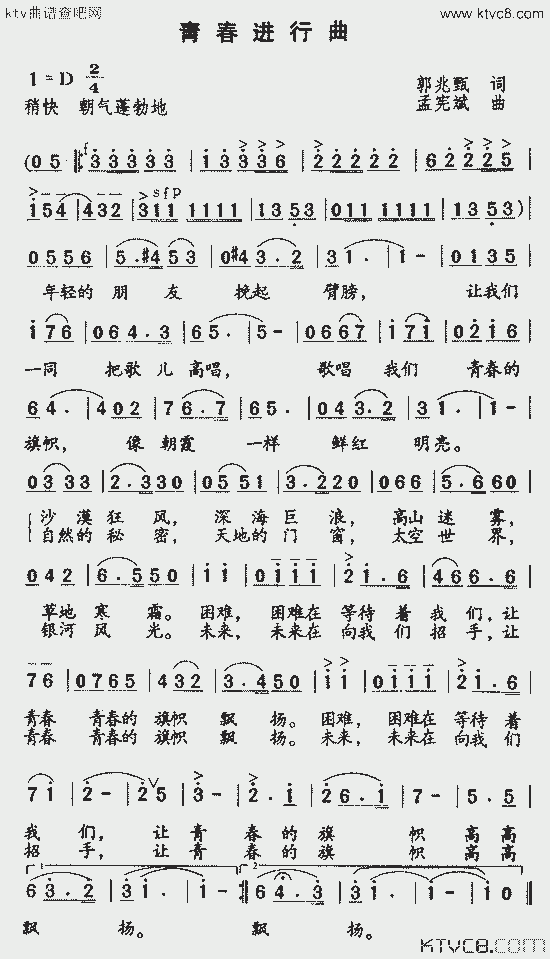 ktv曲谱查吧网 www.ktvc8.com
青春进行曲
1=D 2/4 郭兆甄 词
稍快 朝气蓬勃地 孟宪斌 曲
(0 5 f 3 3 3 3 3 | 1 3 3 3 6 | 2 2 2 2 2 | 6 2 2 2 5 |
1 5 4 | 4 3 2 | sfp 3 1 1 1 1 1 1 | 1 3 5 3 | 0 1 1 1 1 1 1 | 1 3 5 3 )
0 5 5 6 | 5 . #4 5 3 | 0 #4 3 . 2 | 3 1 . | 1 - | 0 1 3 5 |
年轻的 朋 友 挽起 臂膀， 让我们
1 7 6 | 0 6 4 . 3 | 6 5 . | 5 - | 0 6 6 7 | 1 7 1 | 0 2 1 6 |
一同 把歌儿 高唱， 歌唱 我们 青春的
6 4 . | 4 0 2 | 7 6 . 7 | 6 5 . | 0 4 3 . 2 | 3 1 . | 1 - |
旗帜， 像 朝霞 一样 鲜红 明亮。
0 3 3 3 | 2 . 3 3 0 | 0 5 5 1 | 3 . 2 2 0 | 0 6 6 | 5 . 6 6 0 |
沙漠狂风， 深海巨浪， 高山迷雾，
自然的秘密， 天地的门窗， 太空世界，
0 4 2 | 6 . 5 5 0 | 1 1 | 0 1 1 1 | 2 1 . 6 | 4 6 6 . 6 |
草地寒霜。困难， 困难在 等待着我们，让
银河风光。未来， 未来在 向我们招手，让
7 6 | 0 7 6 5 | 4 3 2 | 3 . 4 5 0 | 1 1 | 0 1 1 1 | 2 1 . 6 |
青春 青春的 旗帜 飘扬。困难， 困难在 等待着
青春 青春的 旗帜 飘扬。未来， 未来在 向我们
7 1 | 2 - | 2 V 5 | 3 - | 2 . 1 | 2 6 . 1 | 7 - | 5 . 5 |
我们， 让青 春的旗 帜 高高
招手， 让青 春的旗 帜 高高
1 2
6 3 . 2 | 3 1 . | 1 - | 6 4 . 3 | 3 1 . | 1 - | 1 0 |
飘 扬。 飘 扬。
KTVC8.COM